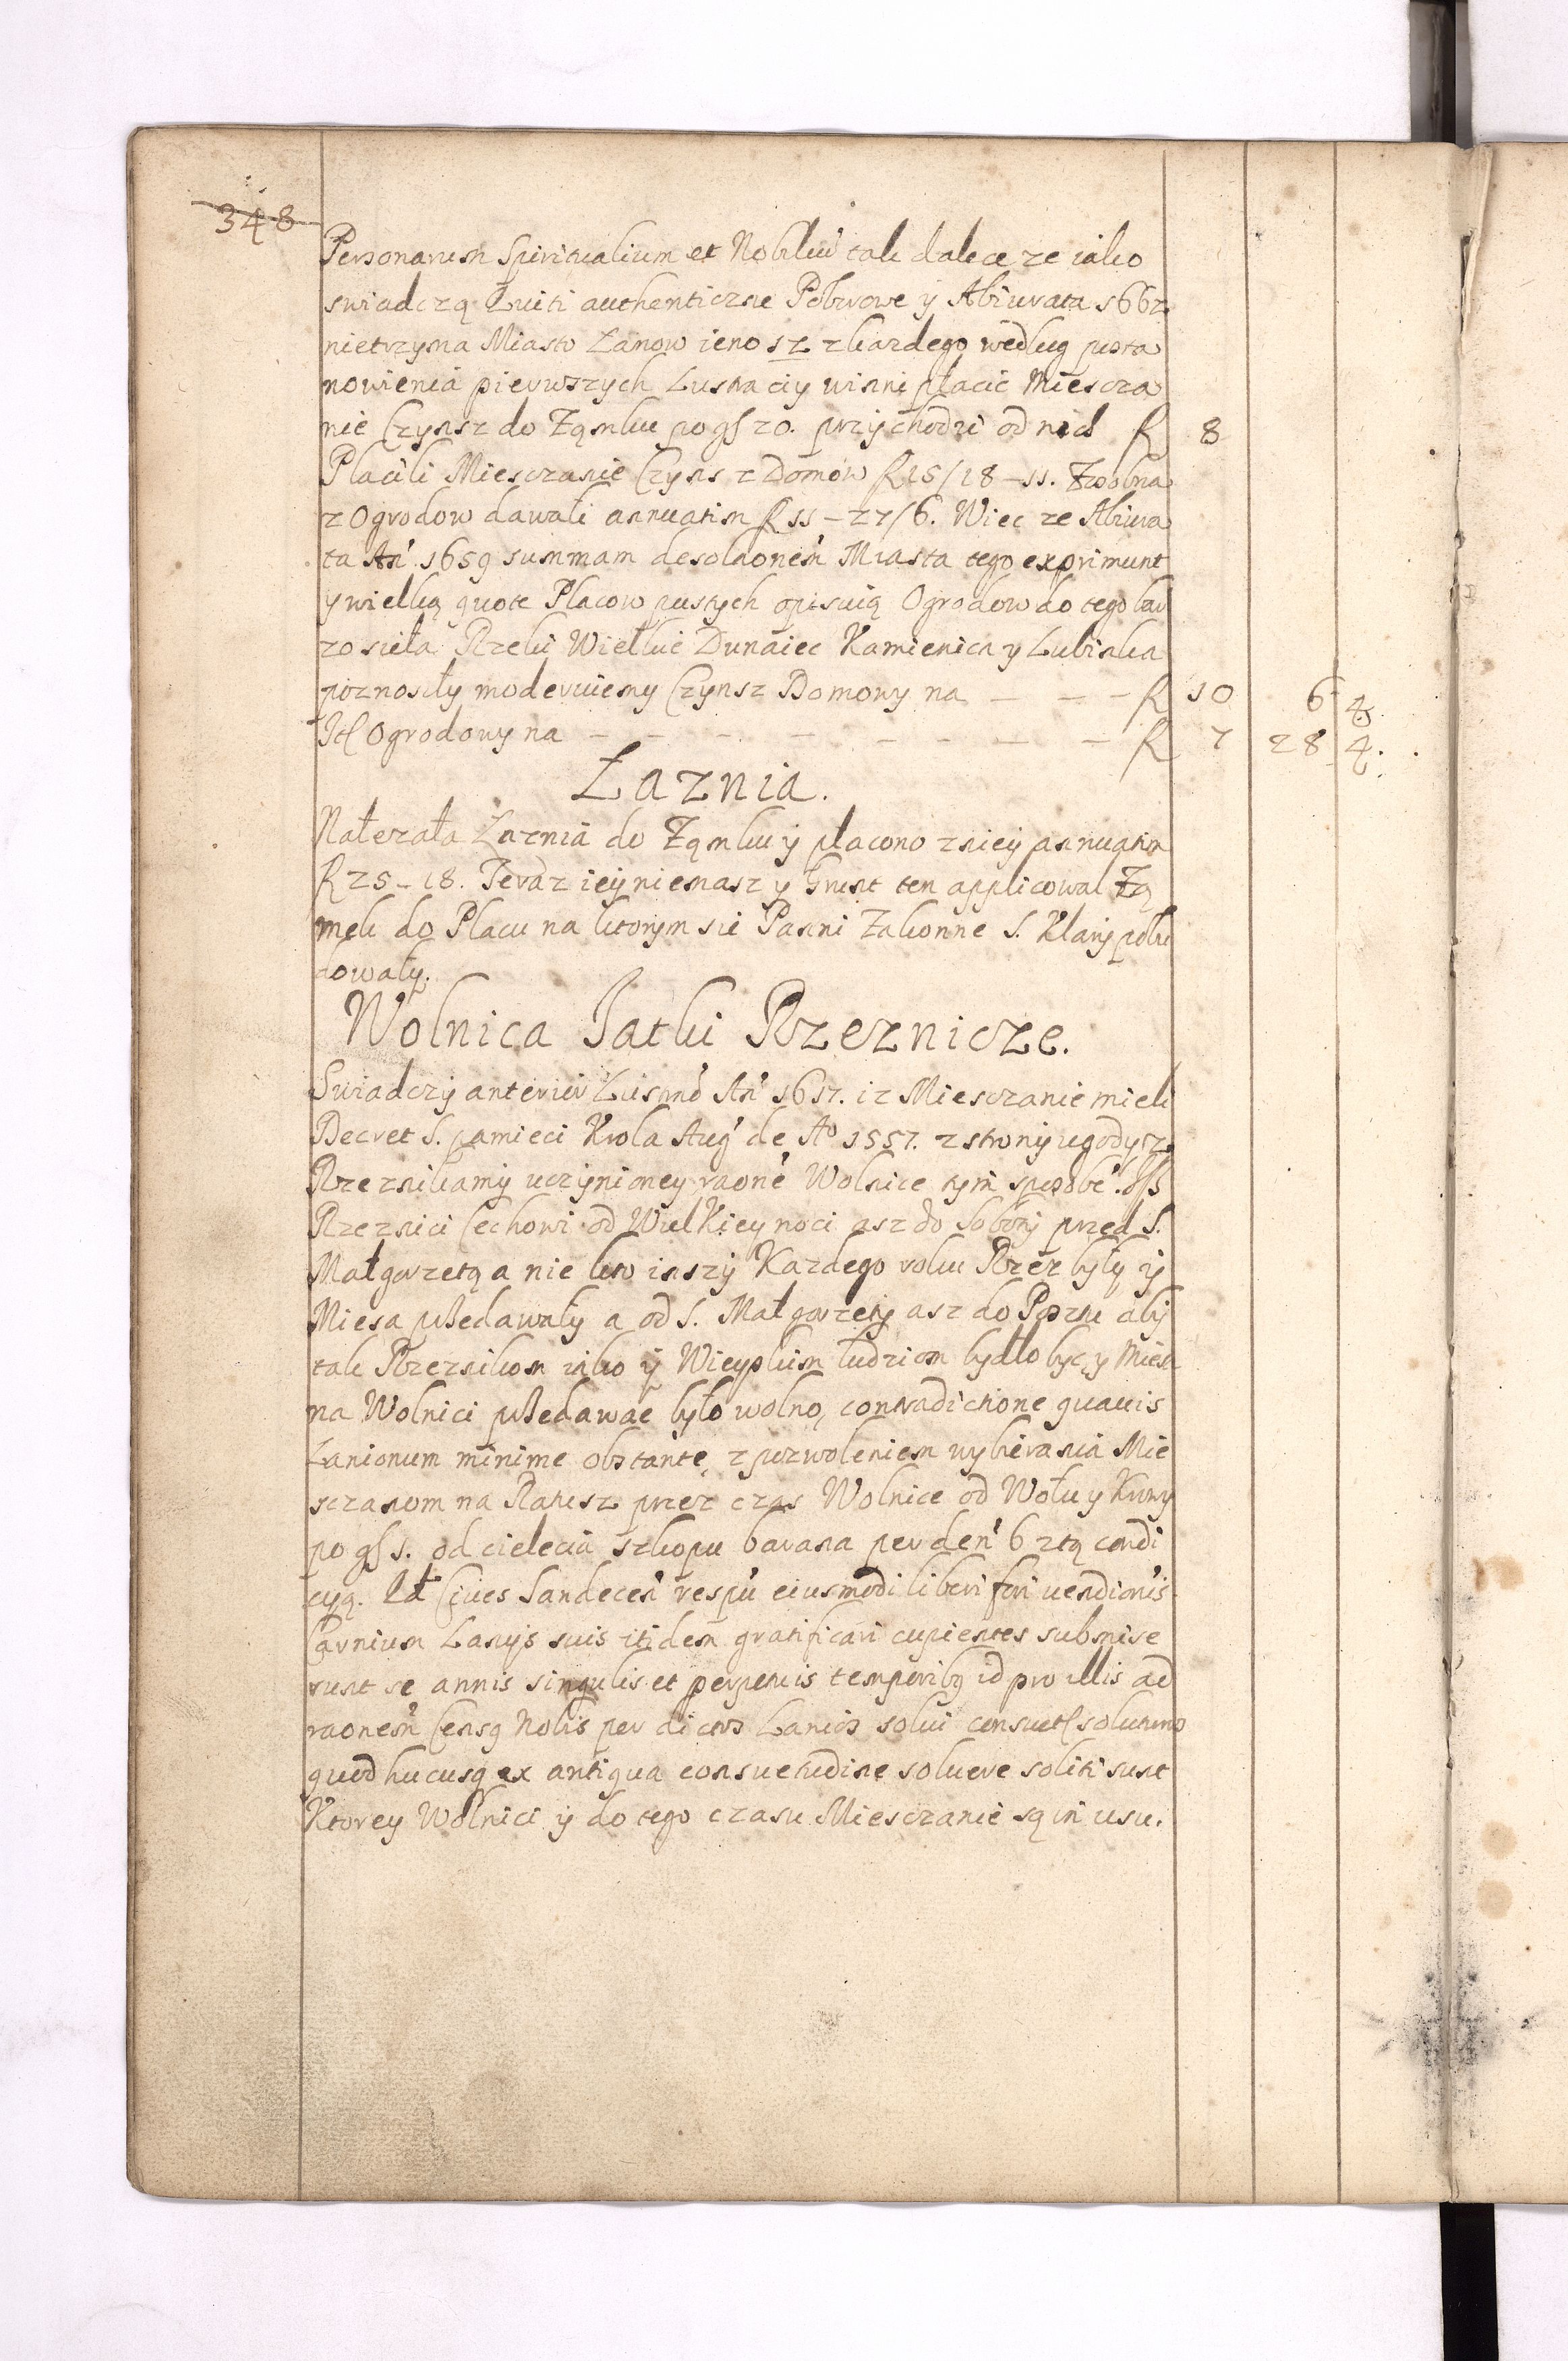 348
Personarum Spiritualium et Nobiliu tak dalece ze iako
swiadczą Quiti authenticzne Poborowe ÿ Abiurata 1662
nietrzyma Miasto Łanow ieno 12 zkazdego według posta
nowienia pierwszych Lustraciy winni płacic Miescza
nie Czynsz do Ząmku po gſ 20. przÿchodzi od nich ƒ 8
Placili Miesczanie Czyns z Domow ƒ 15/18 – 11. Zosobna
z Ogrodow dawali annuatim ƒ 11 – 27/6. Wiec ze Abiura
ta An̄ 1659 summam desolaonem̄ Miasta tego exprimunt
y wielką quote Placow pustych opisuią Ogrodow do tego bar
zo sieła Rzeki Wielkie Dunaiec Kamienica y Lubinka
poznosiły moderuiemy Czynsz Domowy na — — — ƒ 10 6 4.
Itſ Ogrodowy na — — — — — — — — ƒ 7 28 4.
Łaznia.
Nalezała Łaznia do Ząmku ÿ placono zniey annuatim
ƒ 25 – 18. Teraz ieÿ niemasz y Grunt ten applicowal Zą
mek do Placu na ktorym sie Panni Zakonne S. Klarÿ pobu
dowałÿ.
Wolnica Jatki Rzeznicze.
Swiadczÿ anterior Lusmō An̄ 1617. iz Miesczanie mieli
Decret S. pamieci Krola Aug̃ de Aº 1557. z stronÿ ugodÿ z
Rzeznikamÿ uczÿnioney raone Wolnice tÿm sposobē.
Rzeznici Cechowi od WielKieynoci asz do Sobotÿ przed S.
Małgorzetą a nie kto inszÿ Kazdego roku Rzez byłÿ ÿ
Miesa przedawałÿ a od S. Małgorzetÿ asz do Postu abÿ
tak Rzeznikom iako ÿ Wieyskim ludziom bydło byc y Mieso
na Wolnici przedawac bÿło wolno, contradictione quauis
Lanionum minime obstante, z pozwoleniem wybierania Mie
sczanom na Ratusz przez czas Wolnice od Wołu y Krowy
po gſ 1. od cielecia szkopu barana per den̄ 6 ztą condi
cyą. Ut Ciues Sandecen̄ respū eiusmodi liberi fori uendionis
Carnium Lanÿs suis itidem gratificari cupientes submise
runt se annis singulis et perpetuis temporibq id pro illis ad
raonem̄ Censq Nobis per dictos Lanios solui consuetſ soluturos
quod hucusq ex antiqua consuetudine soluere soliti sunt
Ktorey Wolnici ÿ do tego czasu Miesczanie są in usu.